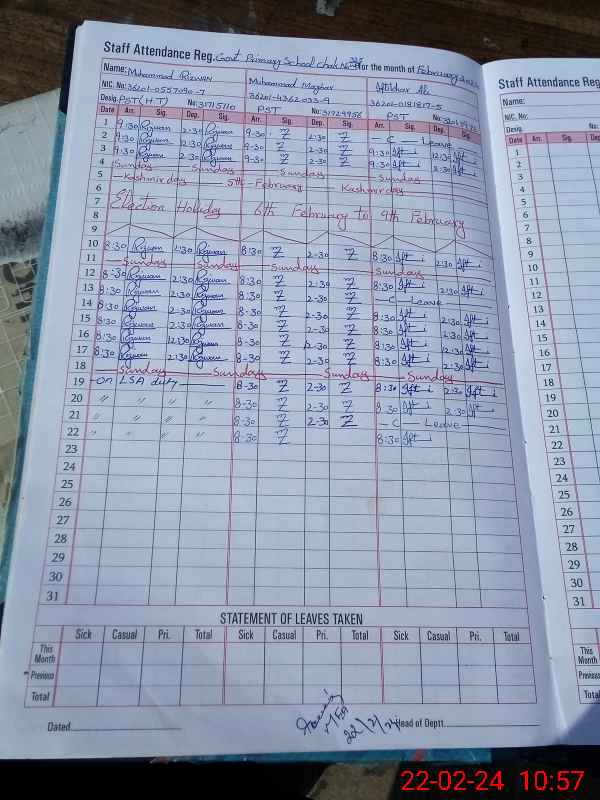 Staff Attendance Reg. Govt Primary School Chak No for the month of February
Name: Muhammad Rizwan Muhammad Mazhar Iftikhar Ali
NIC. No: 36201-0557090-7 36201-4362033-9 36201-0191817-5
Desig. PST (HT) No: 31715110 PST No: 31924956 PST No:
Date Arr. Sig. Dep. Sig. Arr. Sig. Dep. Sig. Arr. Sig. Dep. Sig.
1 9:30 Rizwan 2:30 Rizwan 9-30 2-30 - C - Leave
2 9:30 Rizwan 12:30 Rizwan 9-30 2-30 9:30 Ifti 12:30 Ifti
3 9:30 Rizwan 2:30 Rizwan 9-30 2-30 9:30 Ifti 2:30 Ifti
4 Sunday Sunday Sunday Sunday
5 Kashmir day 5th February Kashmir day
6
7 Election Holiday 6th February to 9th February
8
9
10 8:30 Rizwan 2:30 Rizwan 8:30 2-30 8:30 Ifti 2:30 Ifti
11 Sunday Sunday Sunday Sunday
12 8:30 Rizwan 2:30 Rizwan 8:30 2-30 8:30 Ifti 2:30 Ifti
13 8:30 Rizwan 2:30 Rizwan 8:30 2-30 - C - Leave
14 8:30 Rizwan 2:30 Rizwan 8:30 2-30 8:30 Ifti 2:30 Ifti
15 8:30 Rizwan 2:30 Rizwan 8-30 2-30 8:30 Ifti 2:30 Ifti
16 8:30 Rizwan 12:30 Rizwan 8-30 12-30 8:30 Ifti 12:30 Ifti
17 8:30 Rizwan 2:30 Rizwan 8-30 2-30 8:30 Ifti 2:30 Ifti
18 Sunday Sunday Sunday Sunday
19 -On LSA duty- 8-30 2-30 8:30 Ifti 2:30 Ifti
20 〃 〃 〃 〃 8-30 2-30 8:30 Ifti 2:30 Ifti
21 〃 〃 〃 〃 8-30 2-30 - C - Leave
22 〃 〃 〃 〃 8-30 8:30 Ifti
23
24
25
26
27
28
29
30
31
STATEMENT OF LEAVES TAKEN
Sick Casual Pri. Total Sick Casual Pri. Total Sick Casual Pri. Total
This Month
Previous
Total
Dated Head of Deptt.
MEA
22/2/24
Staff Attendance Reg
Name:
NIC. No:
Desig.
Date Arr. Sig. Dep.
1
2
3
4
5
6
7
8
9
10
11
12
13
14
15
16
17
18
19
20
21
22
23
24
25
26
27
28
29
30
31
Sick Ca
This Month
Previous
Total
Dated
22-02-24 10:57